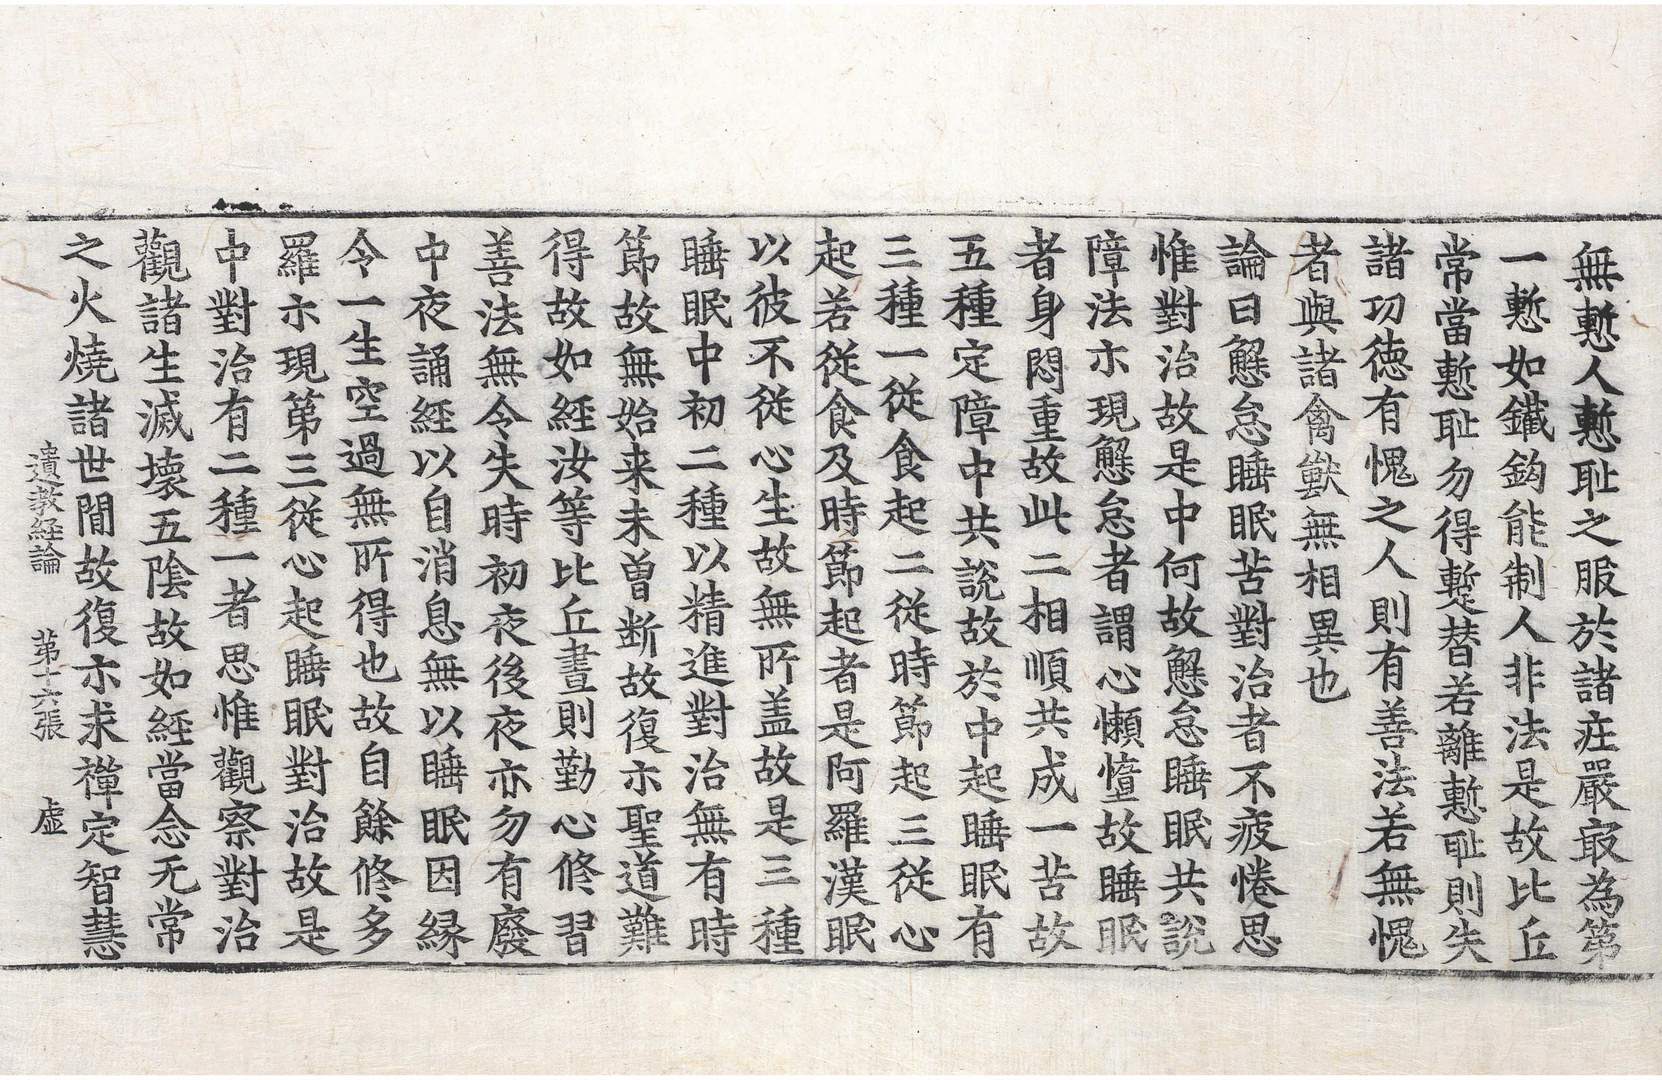 無慙人慙耻之服於諸疘嚴冣為第
一慙如鐵鈎能制人非法是故比丘
常當慙耻勿得蹔替若離慙耻則失
諸功徳有愧之人則有善法若無愧
者與諸禽獸無相異也
論曰懈怠睡眠苦對治者不疲惓思
惟對治故是中何故懈怠睡眠共說
障法亦現懈怠者謂心懶憧故睡眠
者身悶重故此二相順共成一苦故
五種定障中共說故於中起睡眠有
三種一従食起二従時節起三従心
起若従食及時節起者是阿羅漢眠
以彼不従心生故無所盖故是三種
睡眠中初二種以精進對治無有時
節故無始来未曽断故復亦聖道難
得故如經汝等比丘晝則勤心修習
善法無令失時初夜後夜亦勿有廢
中夜誦經以自消息無以睡眠因縁
令一生空過無所得也故自餘修多
羅亦現第三従心起睡眠對治故是
中對治有二種一者思惟觀察對治
觀諸生滅壞五陰故如經當念无常
之火燒諸世間故復亦求禪定智慧
遺教経論　第十六張　虛